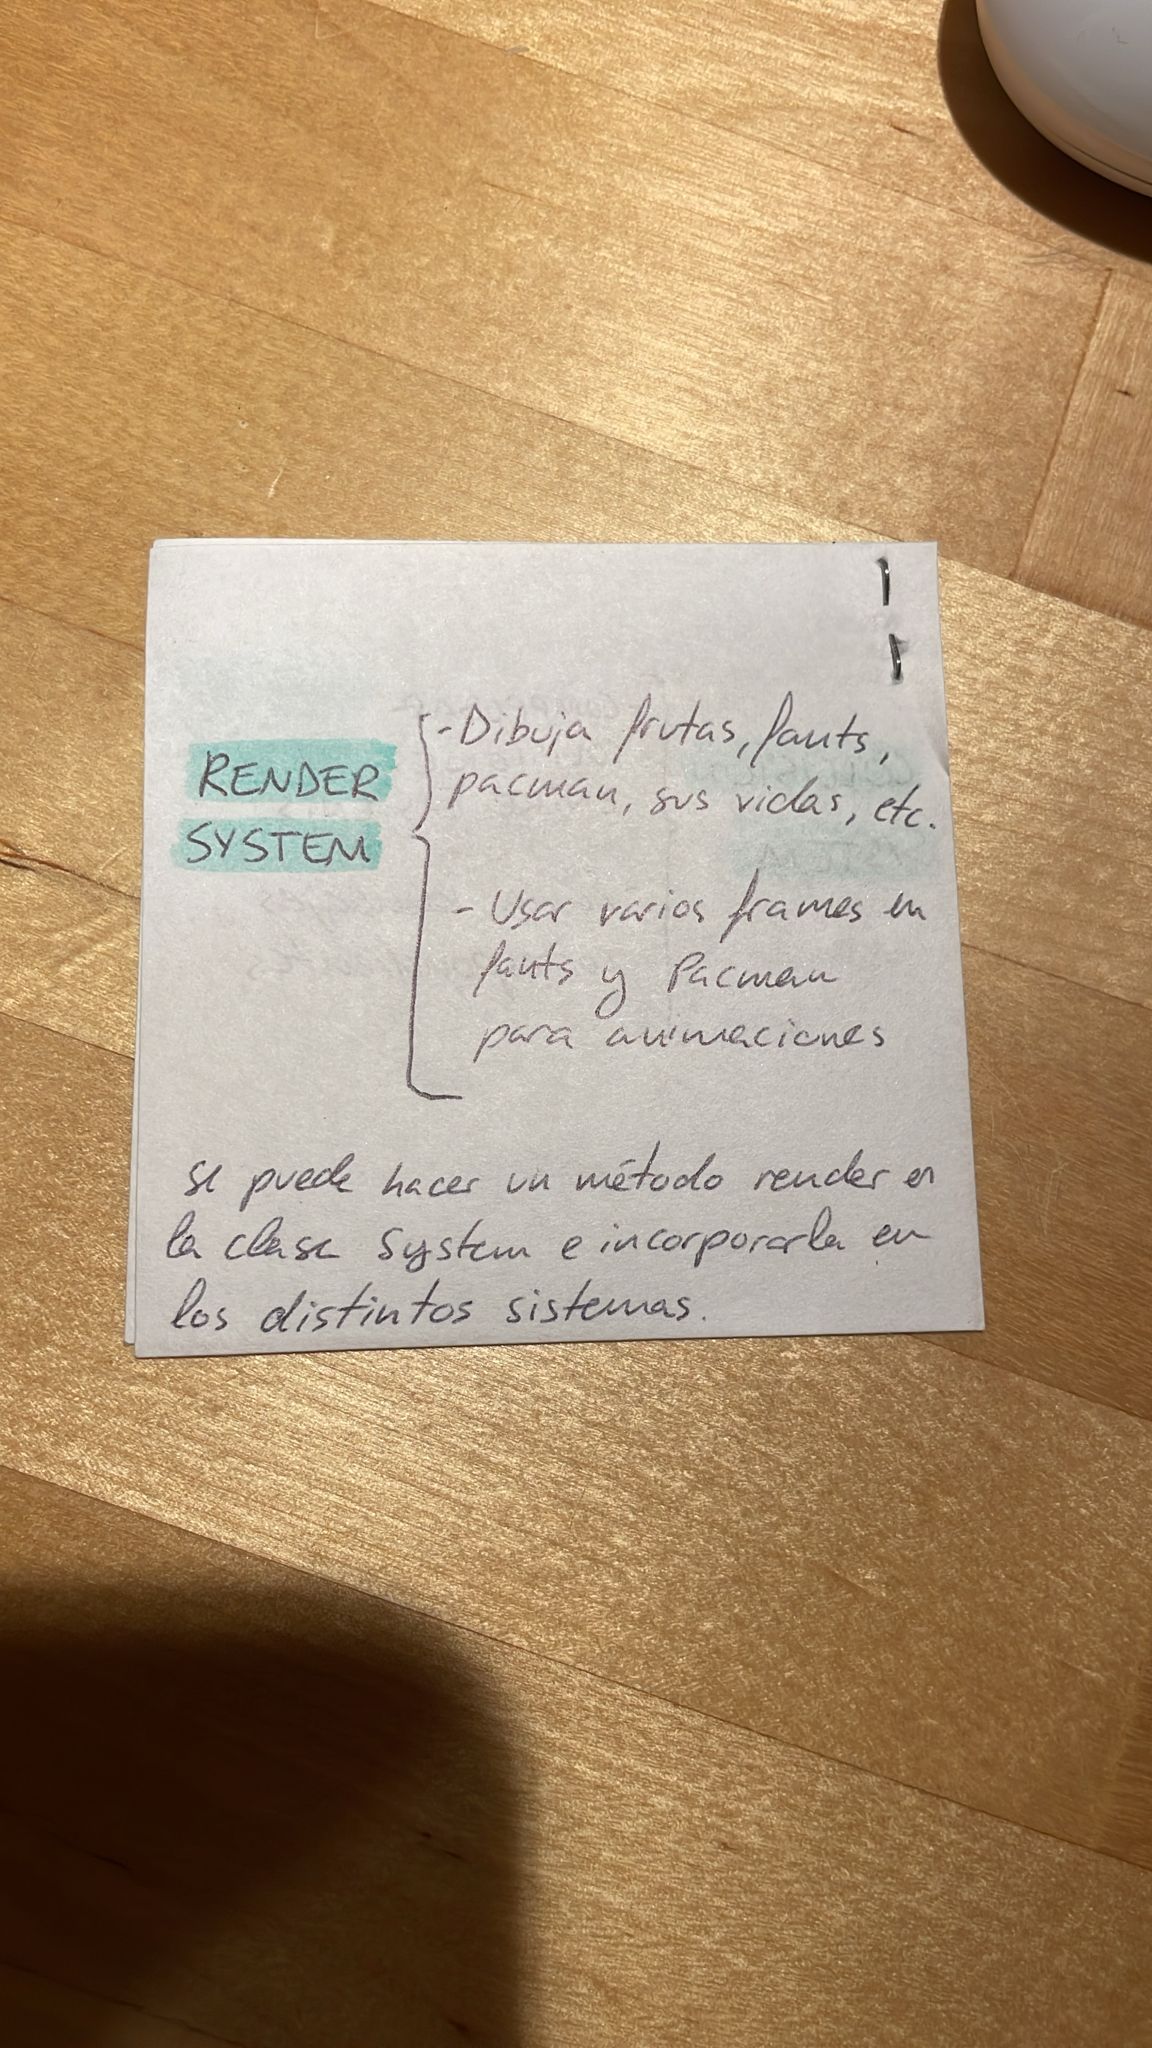 RENDER
SYSTEM
-Dibuja frutas, fants,
pacman, sus vidas, etc.
- Usar varios frames en
fants y Pacman
para animaciones
se puede hacer un método render en
la clase System e incorporarla en
los distintos sistemas.